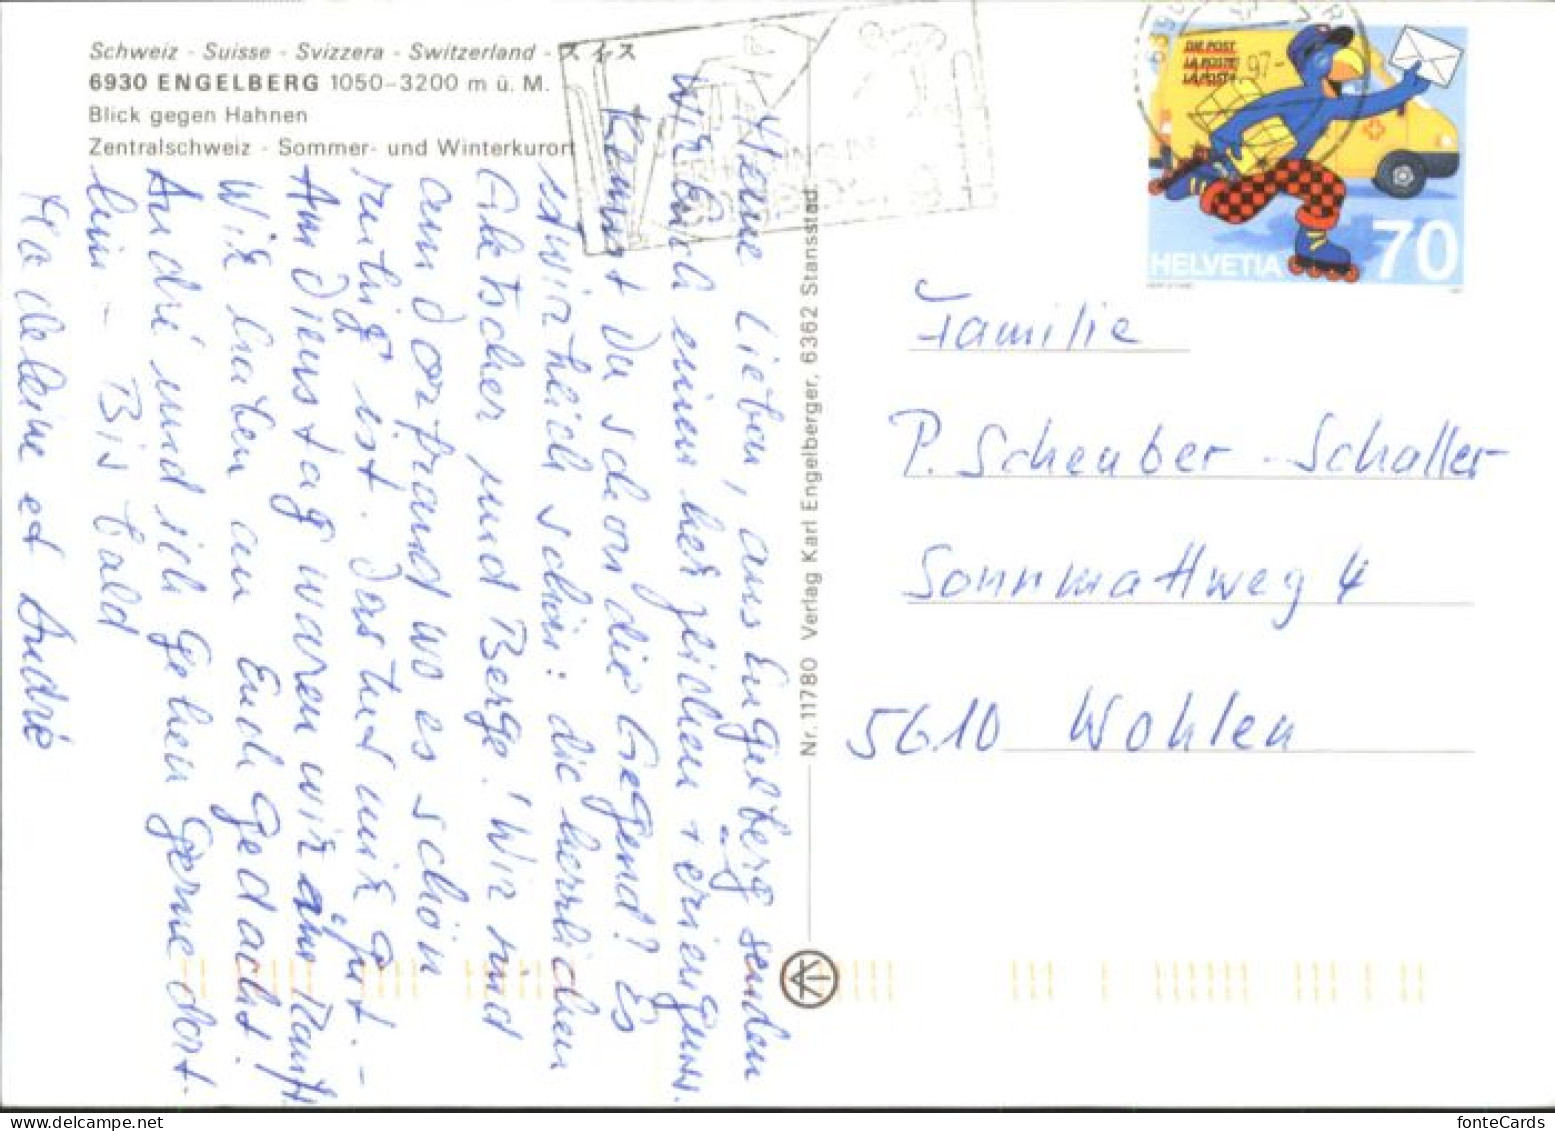 Schweiz - Suisse - Svizzera - Switzerland - スイス
6930 ENGELBERG 1050–3200 m ü. M.
Blick gegen Hahnen
Zentralschweiz - Sommer- und Winterkurort
Meine Lieben, aus Engelberg senden
wir Euch einen herzlichen Feriengruss.
Kennst Du schon die Gegend? Es
ist wirklich schön: die herrlichen
Gletscher und Berge! Wir sind
am Dorfrand wo es schön
ruhig ist. Das tut mir gut. -
Am Dienstag waren wir im Ranft
Wir haben an Euch gedacht!
André und ich gehen gerne dort
hin. - Bis bald
Madeleine et André
Nr. 11780 Verlag Karl Engelberger, 6362 Stansstad
DIE POST
LA POSTE
LA POSTA
97
HELVETIA 70
Familie
P. Scheuber-Schaller
Sonnmattweg 4
5610 Wohlen
fonteCards